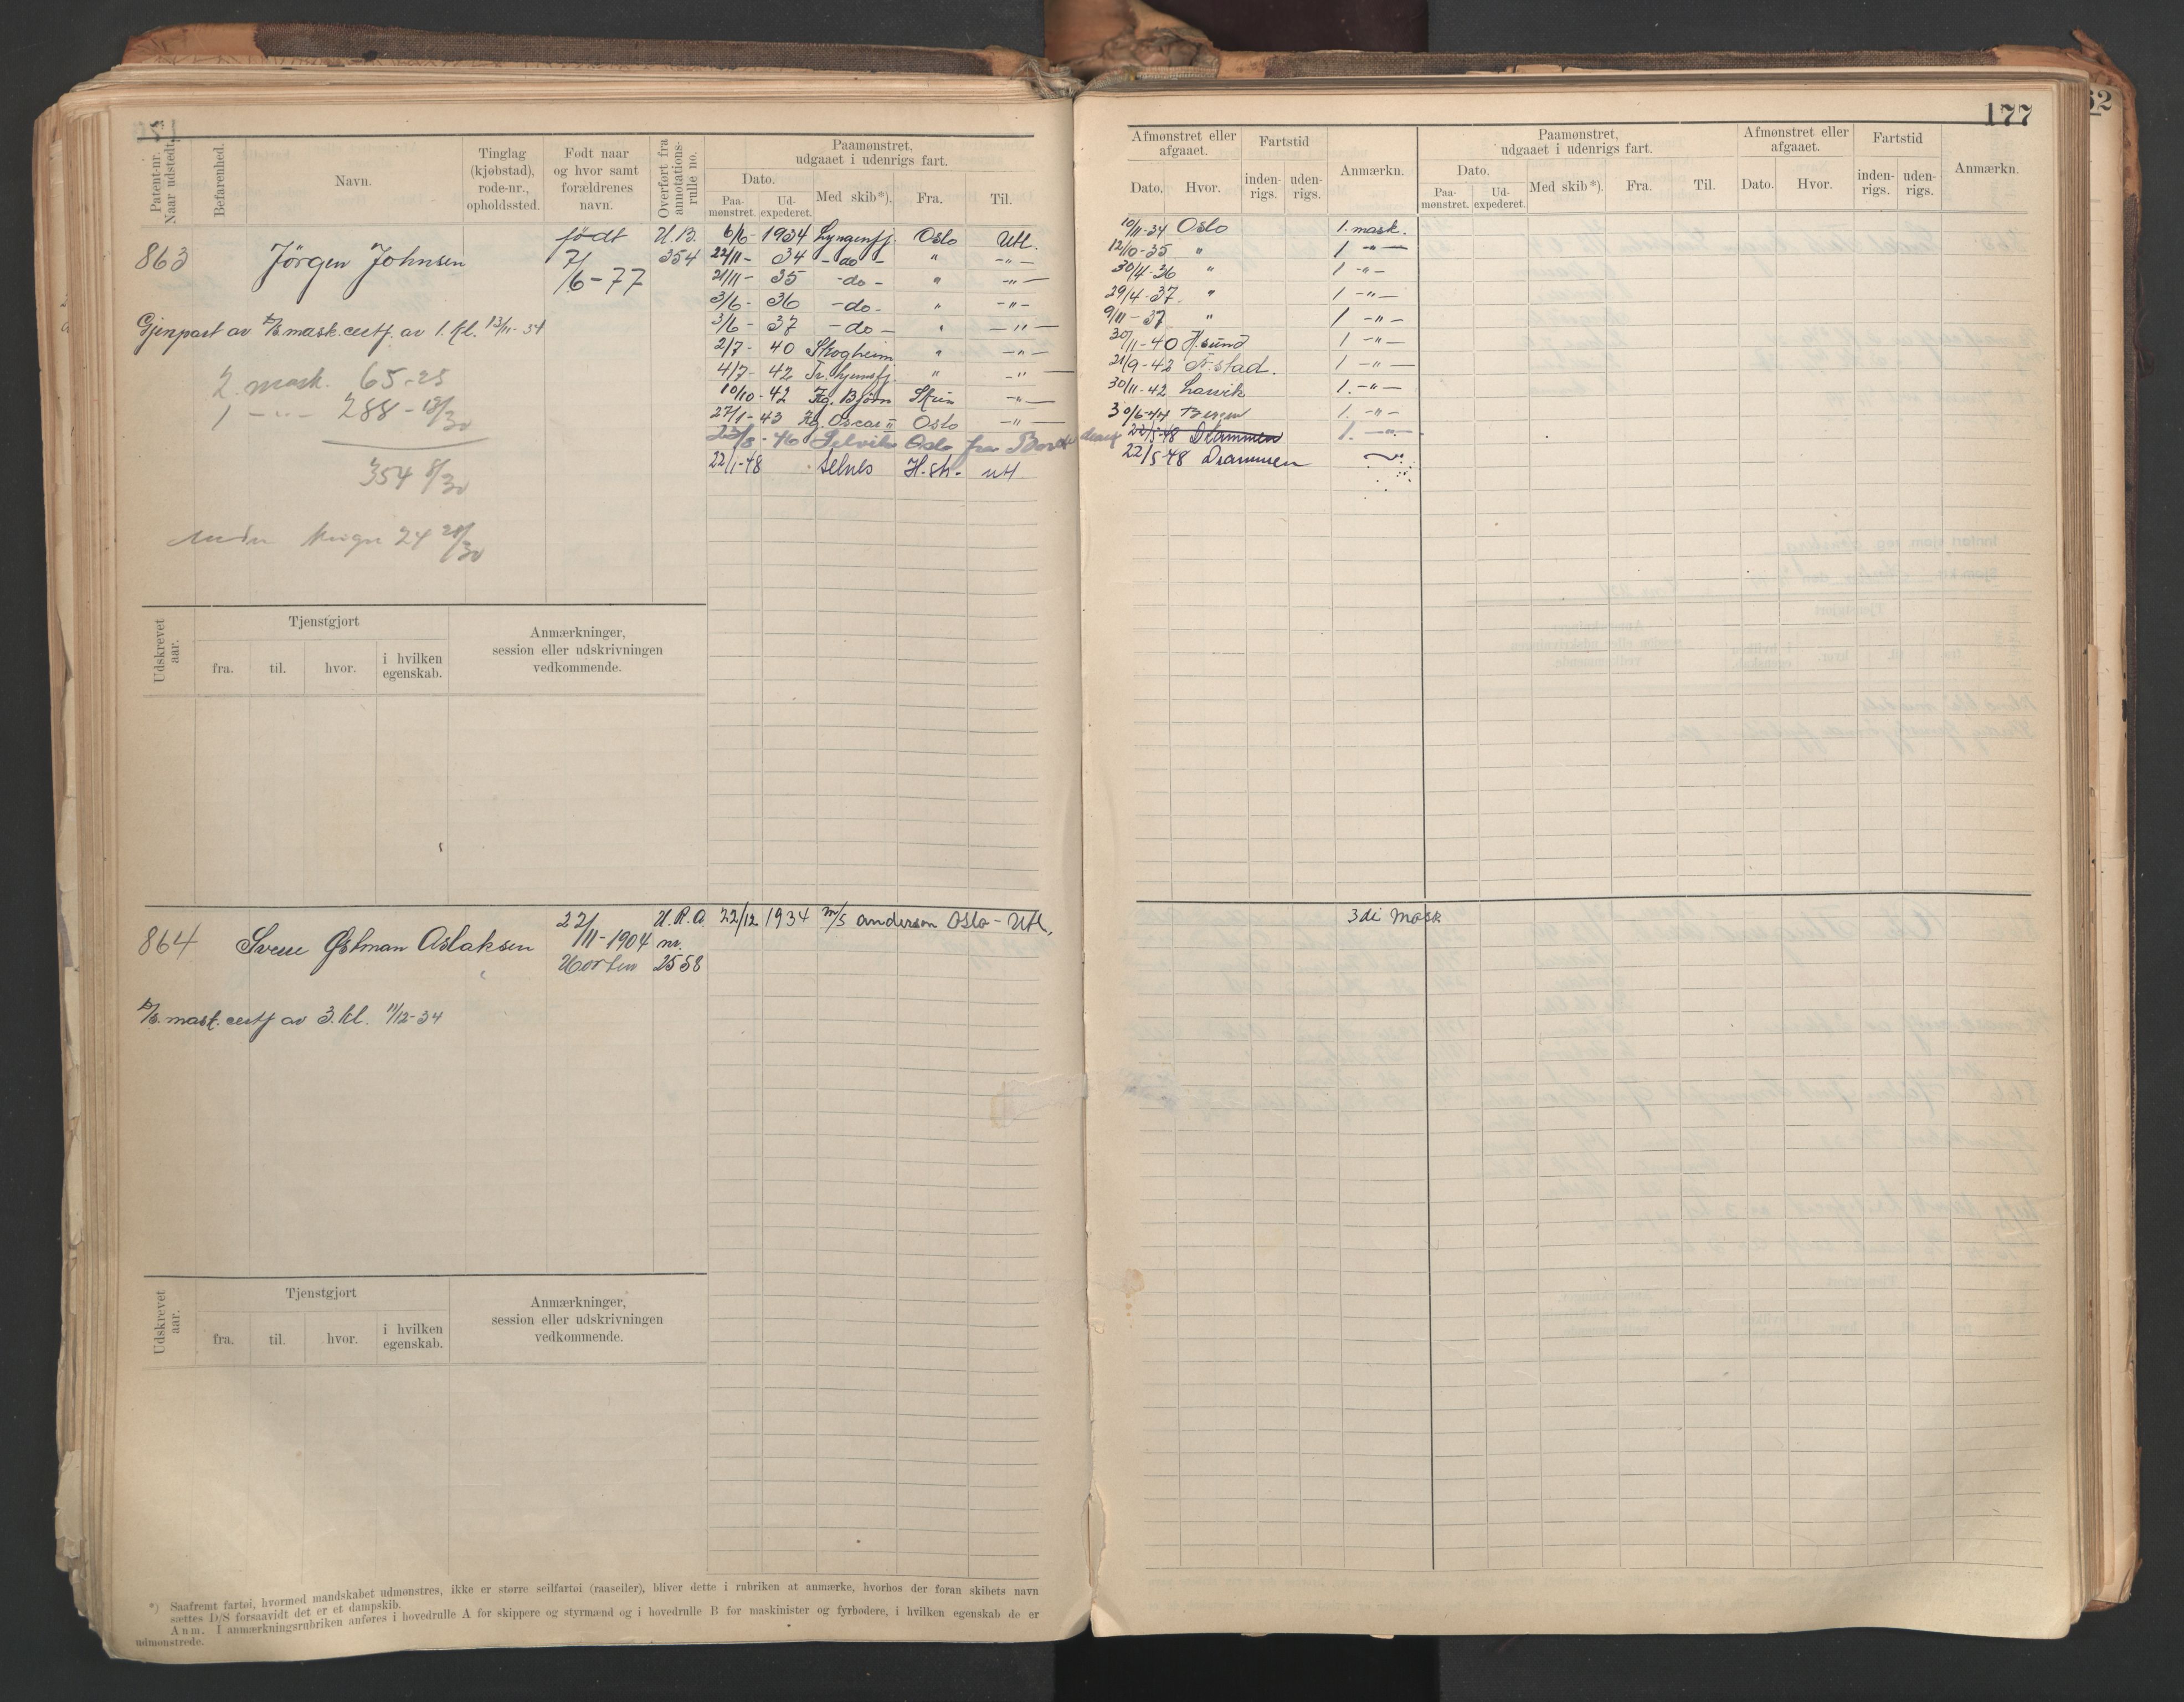 177
52
Patent-nr. Naar udstedt.
Befarenhed.
Navn.
Tinglag (kjøbstad), rode-nr., opholdssted.
Født naar og hvor samt forældrenes navn.
Overført fra annotations-rulle no.
Paamønstret, udgaaet i udenrigs fart.
Dato.
Paa-mønstret.
Ud-expederet.
Med skib*).
Fra.
Til.
Afmønstret eller afgaaet.
Dato.
Hvor.
Fartstid
inden-rigs.
uden-rigs.
Anmærkn.
Paamønstret, udgaaet i udenrigs fart.
Dato.
Paa-mønstret.
Ud-expederet.
Med skib*).
Fra.
Til.
Afmønstret eller afgaaet.
Dato.
Hvor.
Fartstid
inden-rigs.
uden-rigs.
Anmærkn.
863 Jörgen Johnsen født 7/6-77 U.B. 354
6/6- 1934 Lyngenfj. Oslo Utl. 10/11-34 Oslo 1. mask.
22/11- 34 -do- " -"- 12/10-35 " 1 -"-
21/11- 35 -do- " -"- 30/4-36 " 1 -"-
3/6- 36 -do- " -"- 29/4-37 " 1 -"-
3/6- 37 -do- " -"- 9/11-37 " 1 -"-
2/7- 40 Skogheim " -"- 30/11-40 H.sund 1 -"-
4/7- 42 " -"- 21/9-42 F.stad. 1 -"-
10/10-42 Hg. Björn Skien -"- 30/11-42 Larvik 1. -"-
27/1-43 Hg. Oscar II Oslo -"- 30/6-44 Bergen 1. -"-
23/8-46 Selvik Oslo fra 22/5-48 Drammen 1. -"-
22/1-48 Selnes H.str. utl 22/5-48 Drammen
Gjenpart av D/S mask.certf. av 1. kl. 13/11-34
2. mask. 65-25
1 -"- 288-13/30
354 8/30
24 28/30
Udskrevet aar.
Tjenstgjort
fra.
til.
hvor.
i hvilken egenskab.
Anmærkninger, session eller udskrivningen vedkommende.
864 Sverre Østman Aslaksen 22/11-1904 Horten U.R.A. nr. 2558
22/12 1934 m/s anderson Oslo - Utl. 3die Mask
D/S. mask. certf av 3. kl. 11/12-34
Udskrevet aar.
Tjenstgjort
fra.
til.
hvor.
i hvilken egenskab.
Anmærkninger, session eller udskrivningen vedkommende.
*) Saafremt fartøi, hvormed mandskabet udmønstres, ikke er større seilfartøi (raaseiler), bliver dette i rubriken at anmærke, hvorhos der foran skibets navn
sættes D/S forsaavidt det er et dampskib.
Anm. I anmærkningsrubriken anføres i hovedrulle A for skippere og styrmænd og i hovedrulle B for maskinister og fyrbødere, i hvilken egenskab de er
udmønstrede.